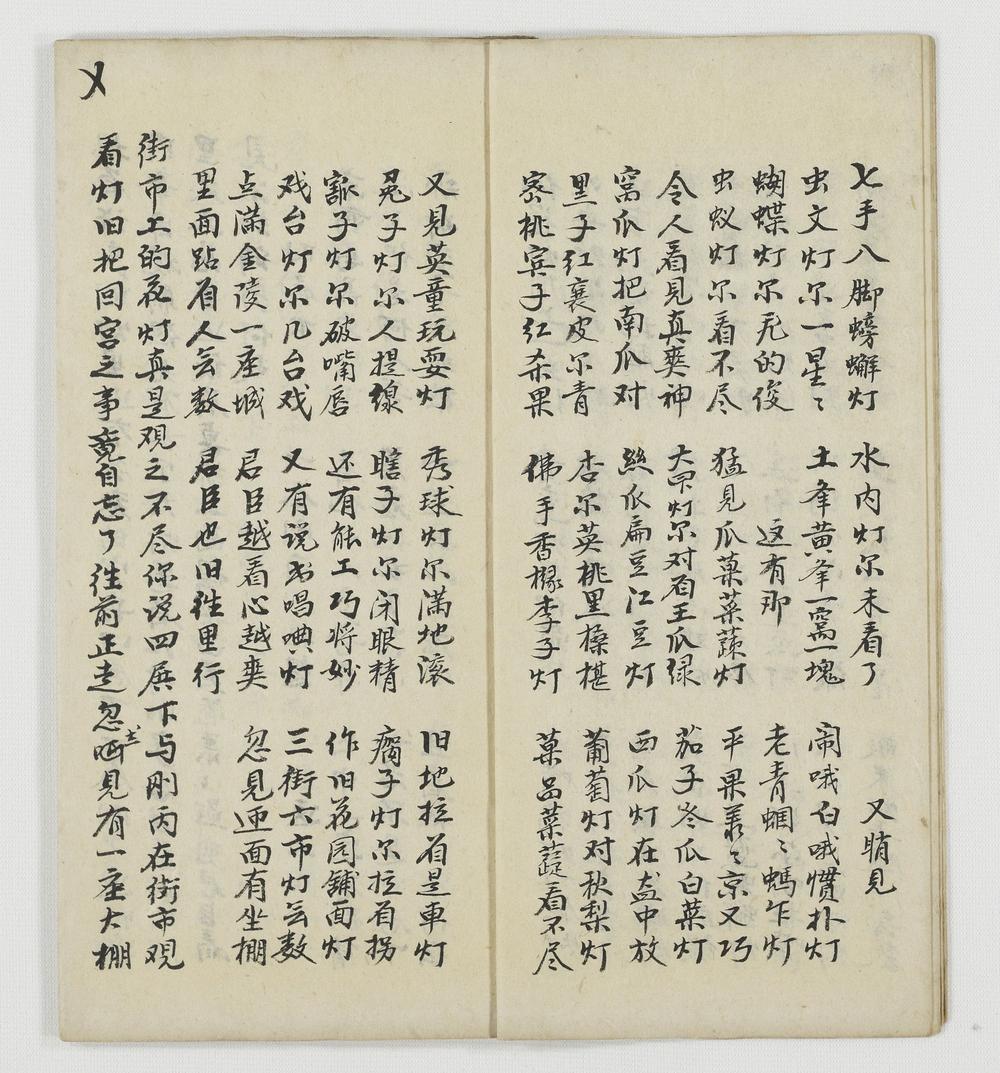 七手八脚螃蠏灯 水内灯尔未看了 又睄見
虫文灯尔一星〻 土夆黄夆一窩一塊 闹哦白哦慣朴灯
蝴蝶灯尔无的俊 这有那 老青蝈〻螞乍灯
虫蚁灯尔看不尽 猛見瓜菓菜蔬灯 平果美〻京又巧
令人看見真奕神 大灯尔对着王瓜绿 茄子冬瓜白菜灯
窩瓜灯把南瓜对 絲瓜扁豆江豆灯 西瓜灯在盆中放
黑子红襄皮尔青 杏尔英桃黑桑椹 葡萄灯对秋梨灯
密桃宾子红杀果 佛手香橼李子灯 菓品菜蔬看不尽
又見英童玩耍灯 秀球灯尔满地滚 旧地拉着是車灯
兎子灯尔人提線 瞎子灯尔闭眼精 瘸子灯尔拉着拐
豁子灯尔破嘴唇 还有能工巧将妙 作旧花园舖面灯
戏台灯尔几台戏 又有说书唱典灯 三街六市灯会数
点满金陵一座城 君臣越看心越奕 忽見迎面有坐棚
里面跕着人会数 君臣也旧往里行
街市工的花灯真是观之不尽你说四展下与刚丙在街市观
看灯旧把回宫之事竟自忘了往前正走忽哂見有一座大棚